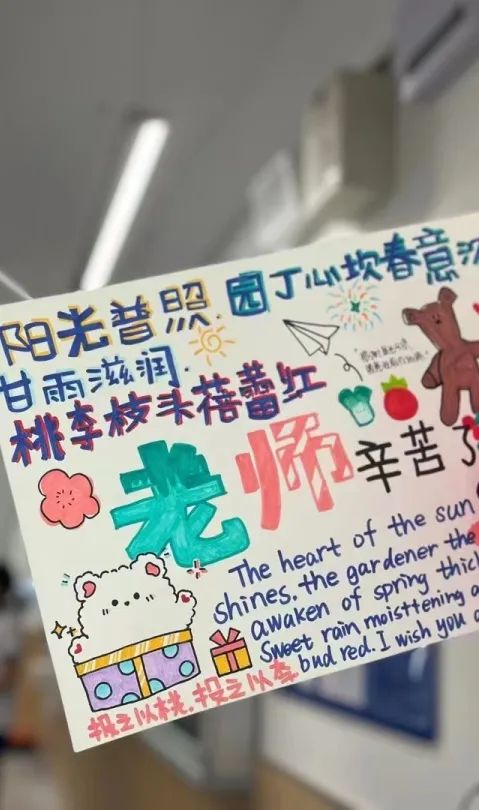 阳光普照.园丁心坎春意
甘雨滋润.
桃李枝头蓓蕾红
老师辛苦了
The heart of the sun
shines. the gardener the
awaken of spring thic
Sweet rain moisttening a
bud red. I wish you a
投之以桃.投之以李